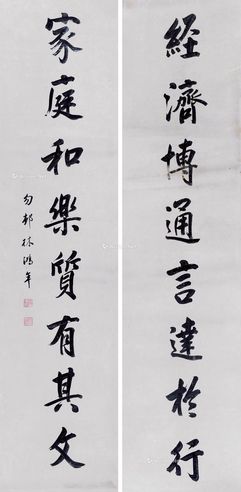 經濟博通言達於行
家庭和樂質有其文
勿邨林鴻年